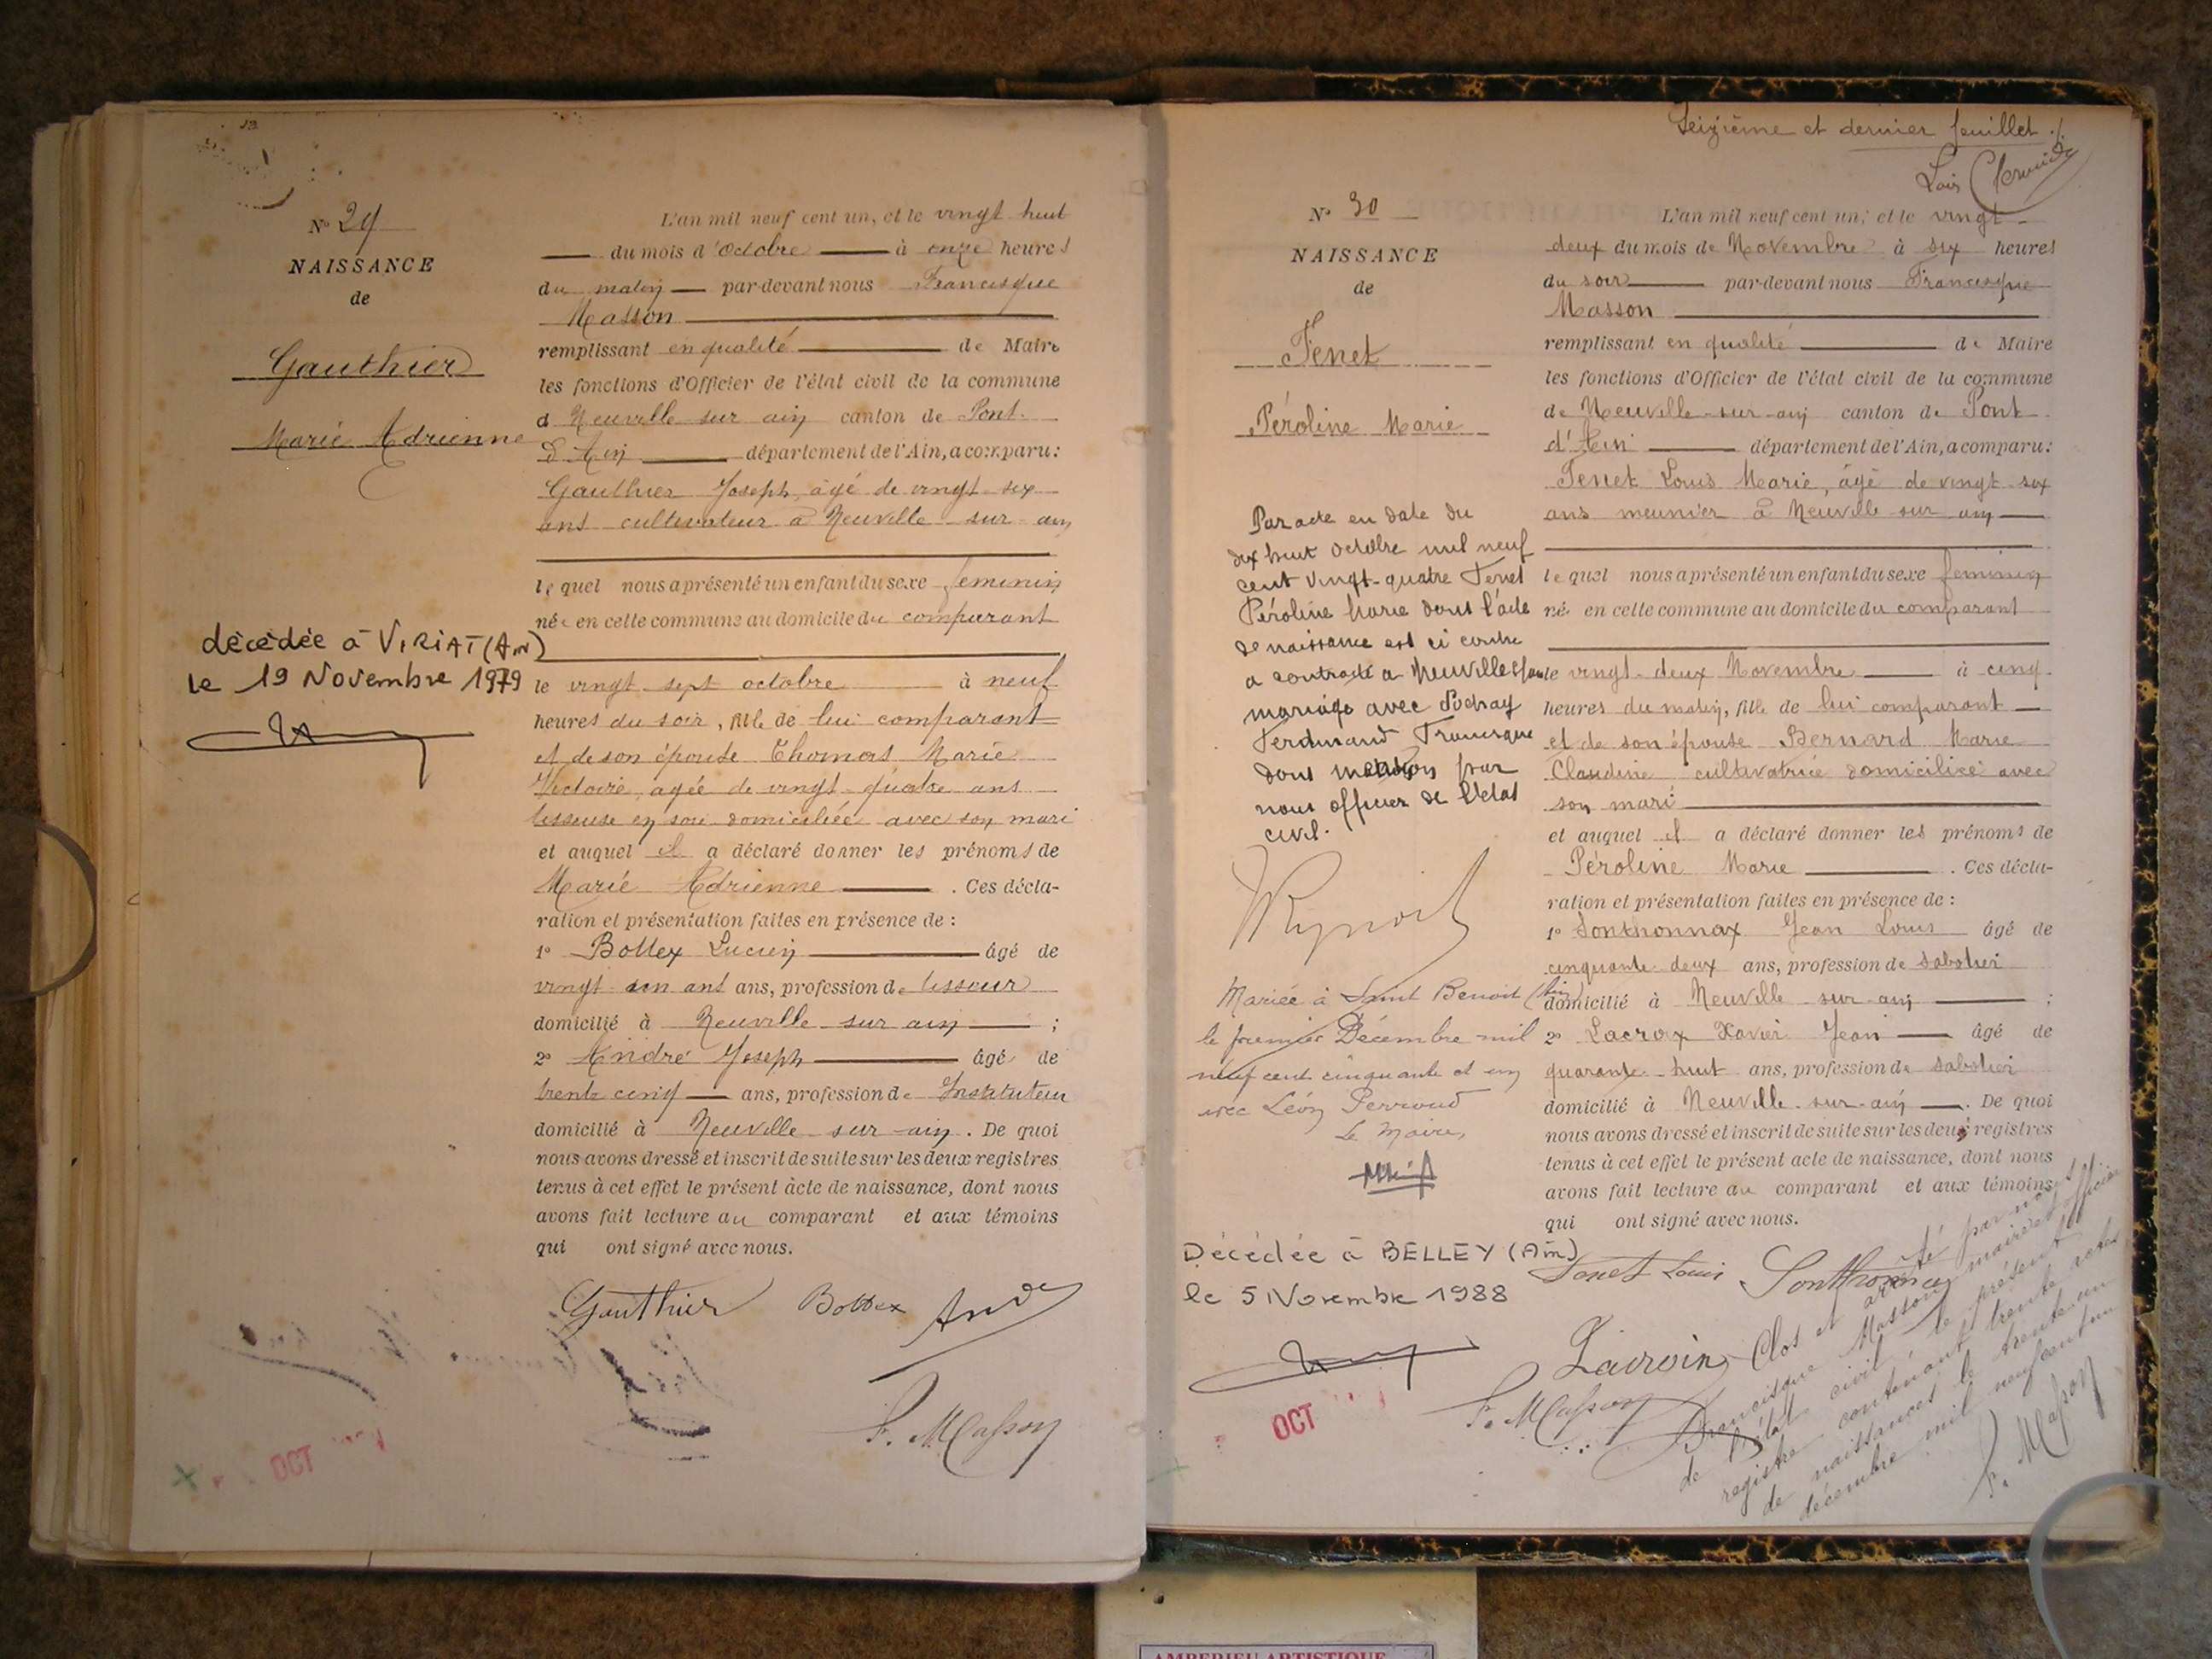 N° 29
NAISSANCE
de
Gauthier
Marie Adrienne
décédée à VIRIAT (Ain)
le 19 Novembre 1979
L'an mil neuf cent un, et le vingt huit
du mois d'Octobre à onze heures
du matin par-devant nous Francisque
Masson
remplissant en qualité de Maire
les fonctions d'Officier de l'état civil de la commune
d Neuville sur ain canton de Pont.
d'Ain département de l'Ain, a comparu :
Gauthier Joseph, âgé de vingt six
ans cultivateur à Neuville sur ain
lequel nous a présenté un enfant du sexe feminin
née en cette commune au domicile du comparant
le vingt sept octobre à neuf
heures du soir, fille de lui comparant
et de son épouse Thomas Marie
Victoire, agée de vingt quatre ans
tisseuse en soie domiciliée avec son mari
et auquel il a déclaré donner les prénoms de
Marie Adrienne . Ces décla-
ration et présentation faites en présence de :
1° Bollex Lucien âgé de
vingt un ans ans, profession de tisseur
domicilié à Neuville sur ain ;
2° André Joseph âgé de
trente cinq ans, profession de Instituteur
domicilié à Neuville sur ain. De quoi
nous avons dressé et inscrit de suite sur les deux registres
tenus à cet effet le présent acte de naissance, dont nous
avons fait lecture au comparant et aux témoins
qui ont signé avec nous.
Gauthier Bollex André
F. Masson
OCT
Seizième et dernier feuillet ./.
N° 30
NAISSANCE
de
Tenet
Péroline Marie
Par acte en date du
dix huit octobre mil neuf
cent vingt-quatre Tenet
Péroline Marie dont l'acte
de naissance est ci contre
a contracté a Neuville s/ain
mariage avec Pochay
Ferdinand Francisque
dont mention par
nous officier de l'etat
civil.
Mariée à Saint Benoit (Ain)
le premier Décembre mil
neuf cent cinquante et un
avec Léon Perroud
Le Maire,
Décédée à BELLEY (Ain)
le 5 Novembre 1988
OCT
L'an mil neuf cent un, et le vingt-
deux du mois de Novembre à six heures
du soir par-devant nous Francisque
Masson
remplissant en qualité de Maire
les fonctions d'Officier de l'état civil de la commune
de Neuville-sur-ain canton de Pont
d'Ain département de l'Ain, a comparu :
Tenet Louis Marie, âgé de vingt six
ans meunier à Neuville sur ain
lequel nous a présenté un enfant du sexe feminin
né en cette commune au domicile du comparant
le vingt-deux Novembre à cinq
heures du matin, fille de lui comparant
et de son épouse Bernard Marie
Claudine cultivatrice domiciliée avec
son mari
et auquel il a déclaré donner les prénoms de
Péroline Marie . Ces décla-
ration et présentation faites en présence de :
1° Sonthonnax Jean Louis âgé de
cinquante deux ans, profession de sabotier
domicilié à Neuville sur-ain ;
2° Lacroix Xavier Jean âgé de
quarante-huit ans, profession de sabotier
domicilié à Neuville-sur-ain . De quoi
nous avons dressé et inscrit de suite sur les deux registres
tenus à cet effet le présent acte de naissance, dont nous
avons fait lecture au comparant et aux témoins
qui ont signé avec nous.
Tenet Louis Sonthonnax
Lacroix
F. Masson
Clos et arrêté par nous
Francisque Masson maire et officier
de l'état civil, le présent
registre contenant trente actes
de naissances le trente-un
décembre mil neuf cent un
F. Masson
AMBERIEU ARTISTIQUE